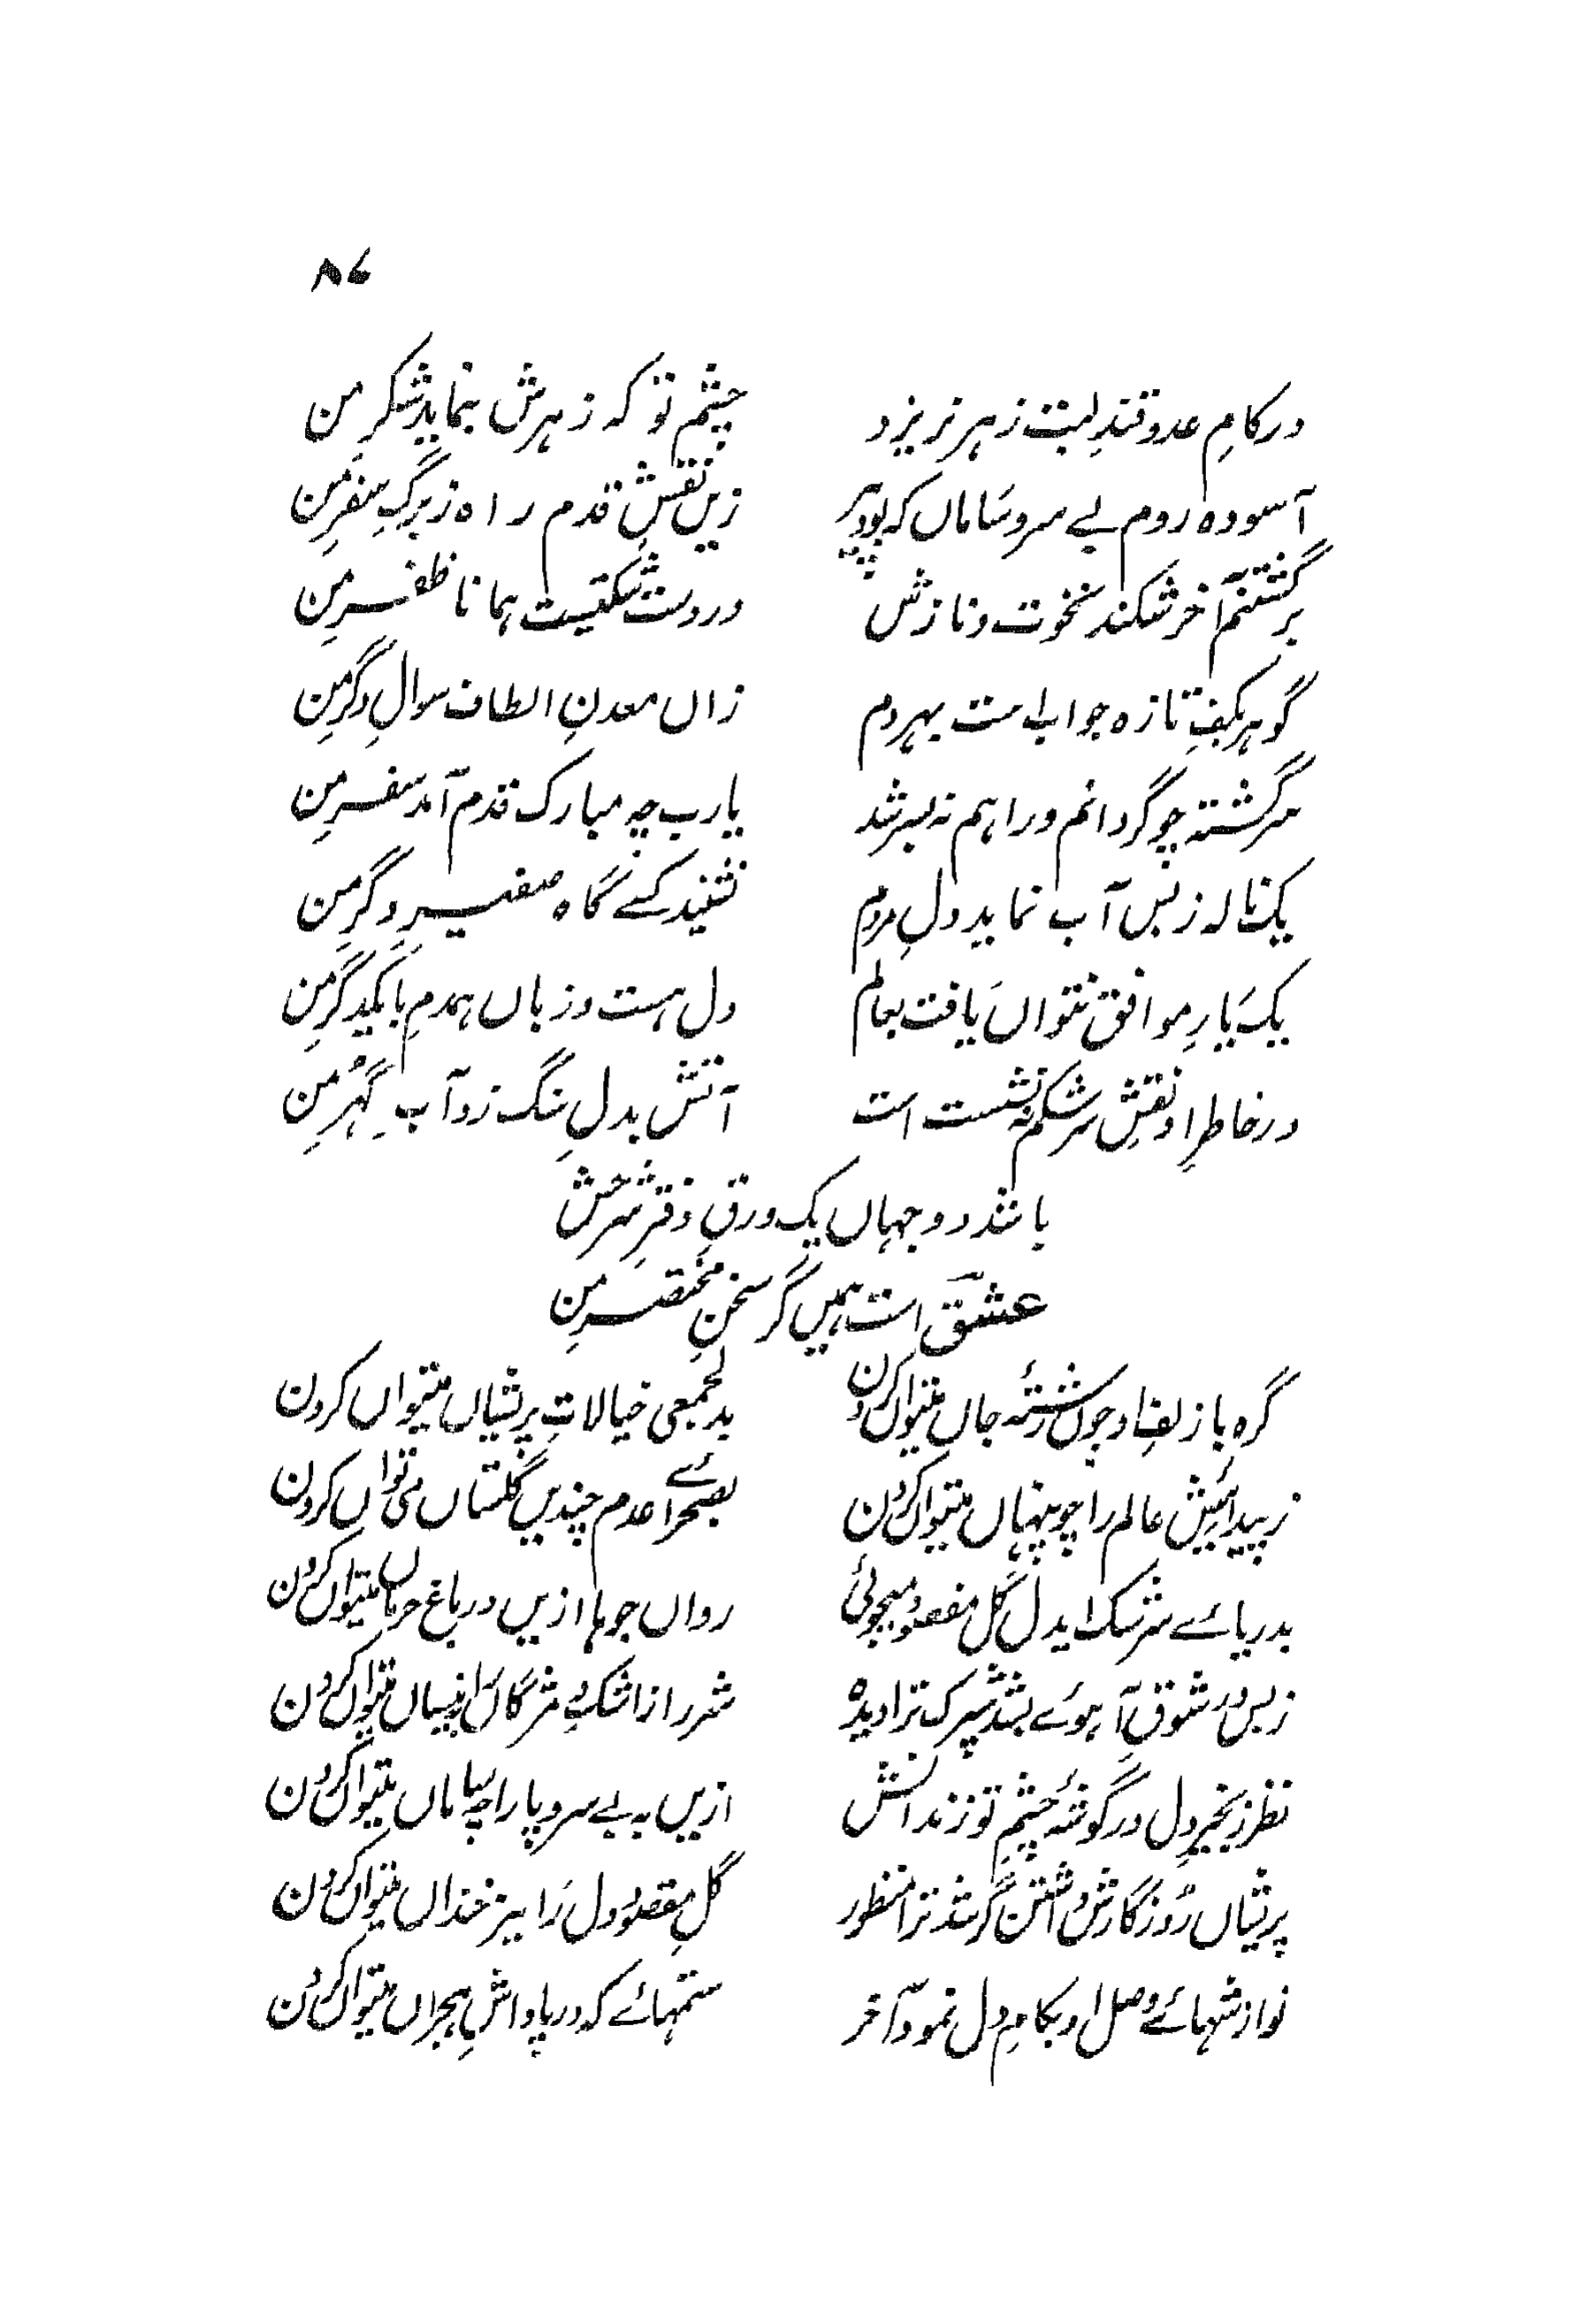 ۸۷
در کامِ عدو قندِ لبت زہر نریزد
چشمِ تو کہ زہرش بنماید شکرِ من
آسودہ روم بے سروساماں کہ بود پُر
زیں نقشِ قدم راہ ز برگِ سفرِ من
برگشتنم آخر شکند نخوت و نازش
در دست شکستیست ہمانا ظفرِ من
گوہر بکفِ تازہ جواب است بہر دم
زاں معدنِ الطاف سوالِ دگرِ من
سرگشتہ چو گردانم و راہم نہ بسر شد
یارب چہ مبارک قدم آمد سفرِ من
یک نالہ ز بس آب نماید دلِ مردم
نشنید کسے گاہ صفیرِ دگرِ من
یک یارِ موافق نتواں یافت بعالم
دل ہست و زباں ہمدمِ با یکدگرِ من
در خاطرِ او نقشِ سرشکم نہ نشست است
آتش بدلِ سنگ زد آبِ گہُرِ من
باشد دو جہاں یک ورقِ دفترِ شرحش
عشقؔ است ہمیں گر سخنِ مختصرِ من
گرہ با زلفِ او چوں رشتۂ جاں میتواں کردن
بدلجمعی خیالاتِ پریشاں میتواں کردن
ز پیدائیش عالم را چو پنہاں میتواں کردن
بصحرائے عدم چندیں گلستاں می تواں کردن
بدریائے سرشک ایدل گل مقصود میجوئی
رواں جوہا ازیں در باغ حرماں میتواں کردن
ز بس در شوقِ آہوئے بشد شیرک ترا دیدہ
شرر را ز اشک و مژگاں را نیساں میتواں کردن
نظر زنجیرِ دل در گوشۂ چشمِ تو زندانش
ازیں بہ بے سروپا را چہ ساماں میتواں کردن
پریشاں روزگارش داشتن گر شد ترا منظور
گلِ مقصودِ دل را نیز خنداں میتواں کردن
نوازشہائے وصل او بکامِ دل نمود آخر
ستمہائے کہ در پاداشِ ہجراں میتواں کردن